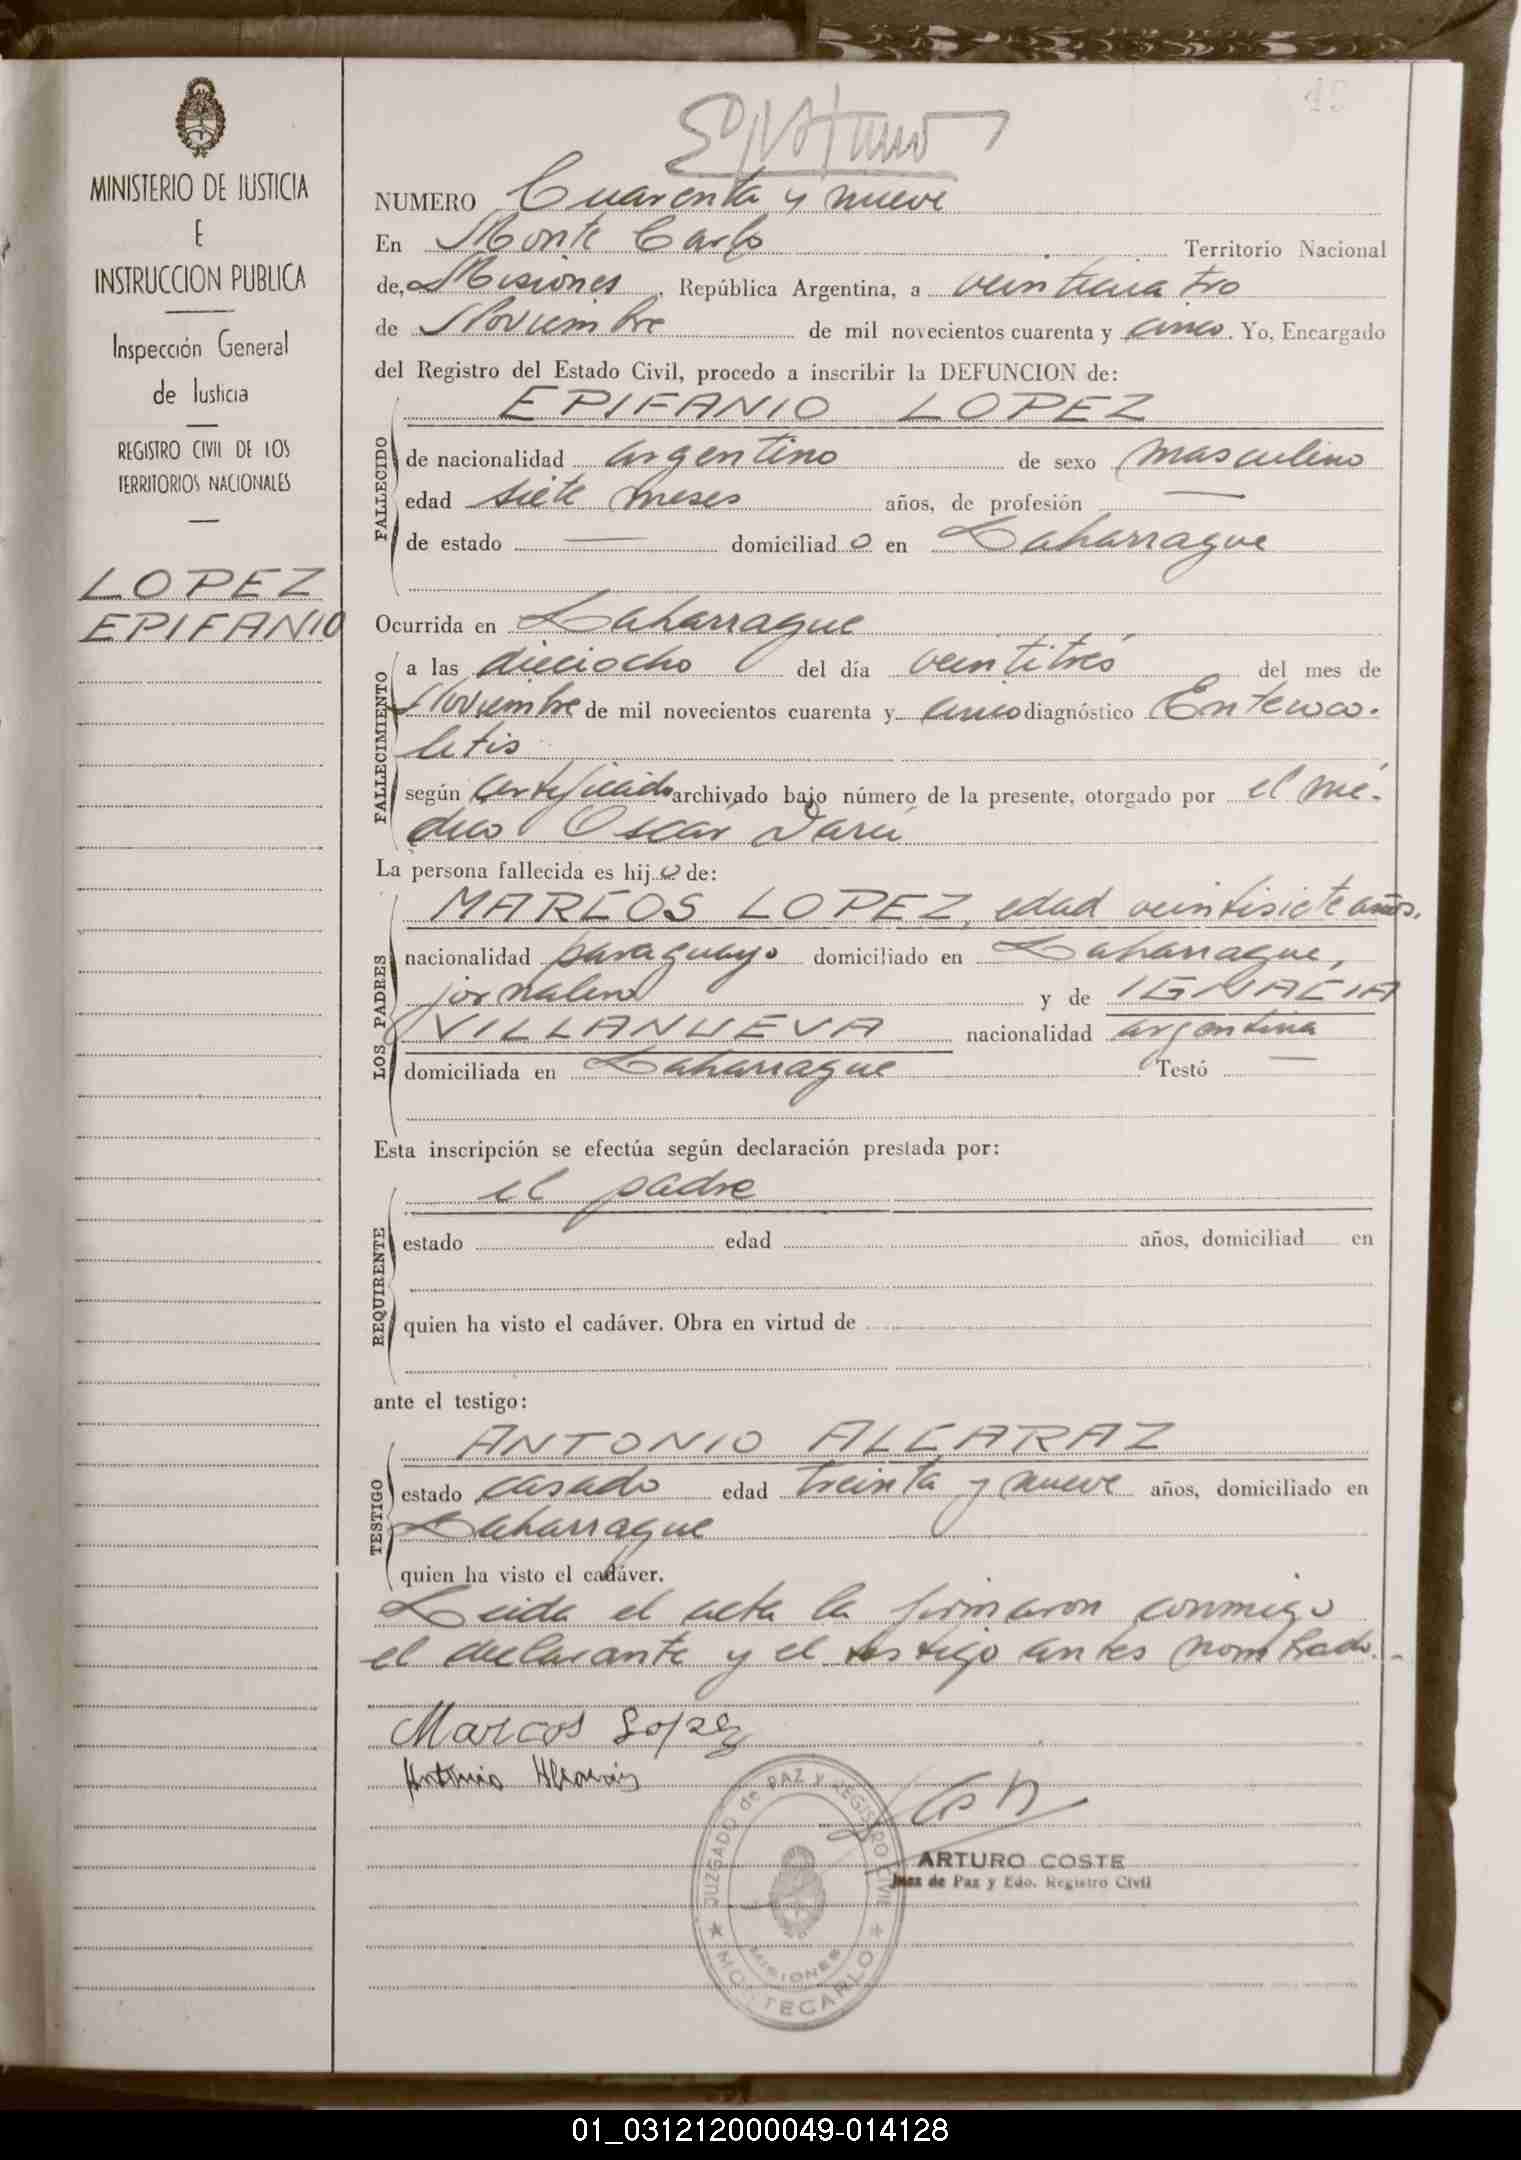 MINISTERIO DE JUSTICIA
E
INSTRUCCION PUBLICA
Inspección General
de Justicia
REGISTRO CIVIL DE LOS
TERRITORIOS NACIONALES
LOPEZ
EPIFANIO
NUMERO Cuarenta y nueve
En Monte Carlo Territorio Nacional
de, Misiones, República Argentina, a veinticuatro
de Noviembre de mil novecientos cuarenta y cinco. Yo, Encargado
del Registro del Estado Civil, procedo a inscribir la DEFUNCION de:
FALLECIDO
EPIFANIO LOPEZ
de nacionalidad argentino de sexo masculino
edad siete meses años, de profesión —
de estado — domiciliado en Laharrague
Ocurrida en Laharrague
FALLECIMIENTO
a las dieciocho del día veintitrés del mes de
Noviembre de mil novecientos cuarenta y cinco diagnóstico Enteroco-
litis
según certificado archivado bajo número de la presente, otorgado por el mé-
dico Oscar Darú
La persona fallecida es hijo de:
LOS PADRES
MARCOS LOPEZ, edad veintisiete años.
nacionalidad paraguayo domiciliado en Laharrague,
jornalero y de IGNACIA
VILLANUEVA nacionalidad argentina
domiciliada en Laharrague Testó —
Esta inscripción se efectúa según declaración prestada por:
REQUIRENTE
el padre
estado edad años, domiciliad en
quien ha visto el cadáver. Obra en virtud de
ante el testigo:
TESTIGO
ANTONIO ALCARAZ
estado casado edad treinta y nueve años, domiciliado en
Laharrague
quien ha visto el cadáver.
Leida el acta la firmaron conmigo
el declarante y el testigo antes nombrado.-
Marcos Lopez
Antonio
JUZGADO de PAZ Y REGISTRO CIVIL
MISIONES
MONTECARLO
ARTURO COSTE
Juez de Paz y Edo. Registro Civil
01_031212000049-014128